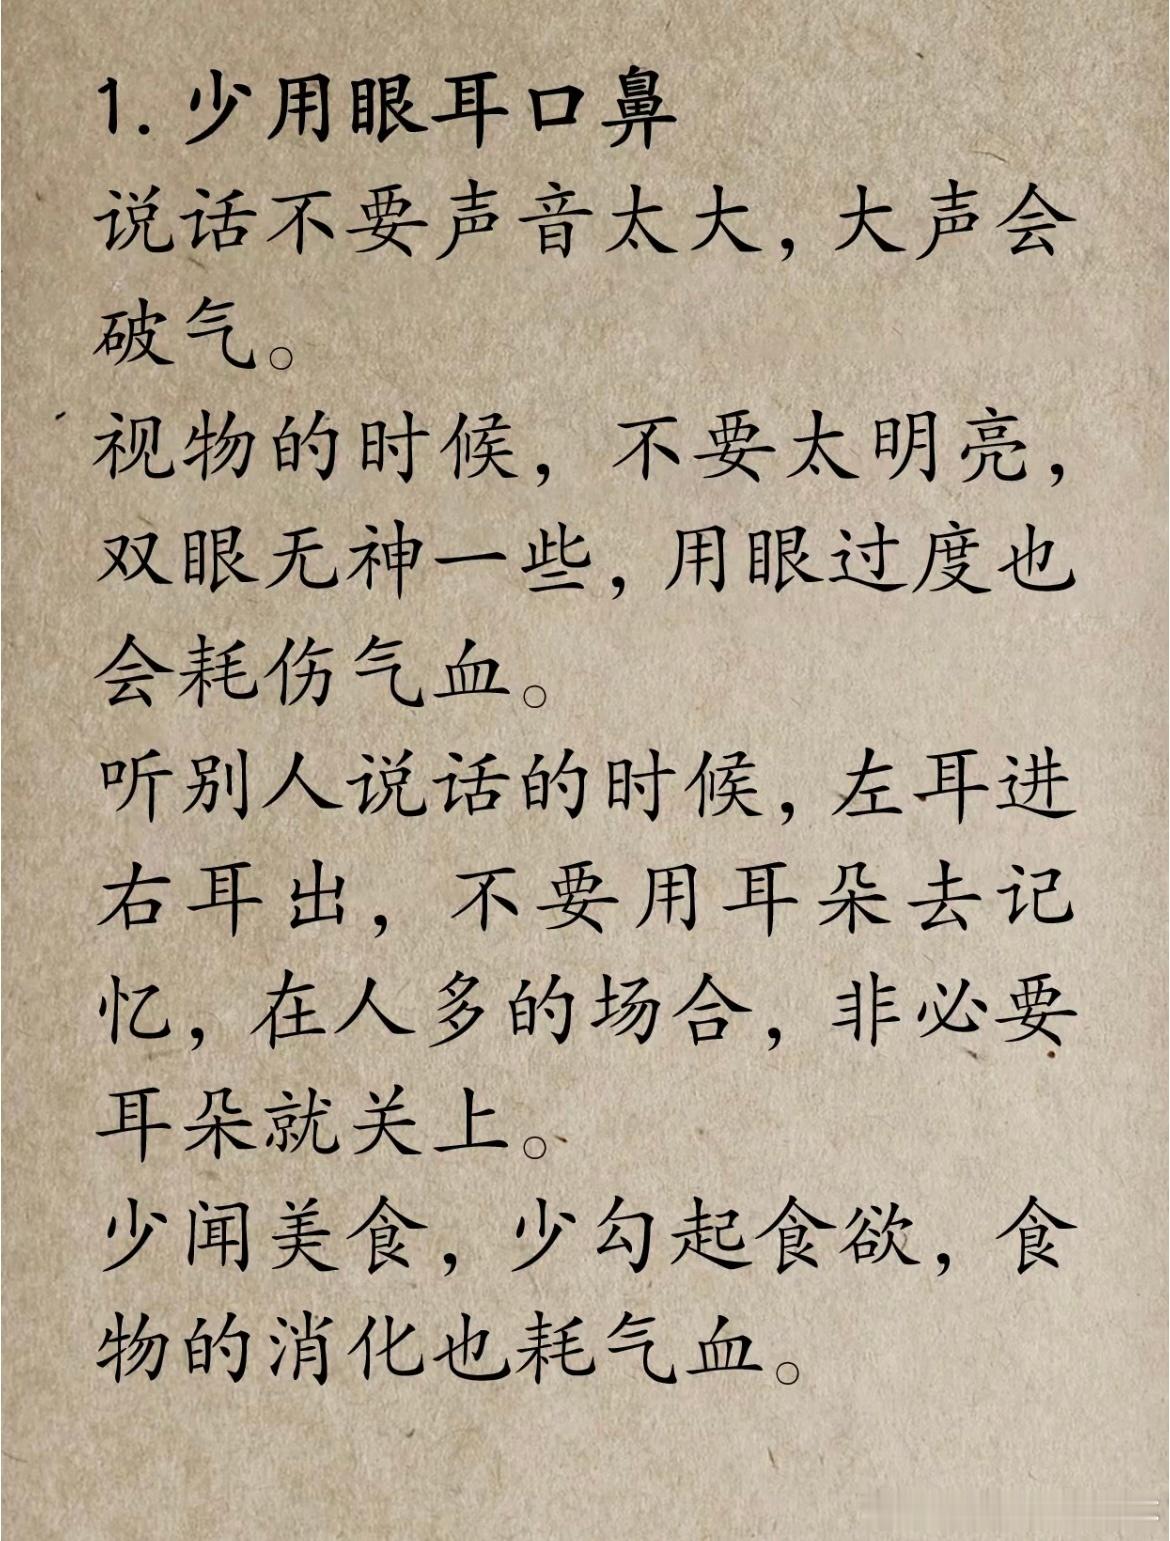 1. 少用眼耳口鼻
说话不要声音太大，大声会
破气。
视物的时候，不要太明亮，
双眼无神一些，用眼过度也
会耗伤气血。
听别人说话的时候，左耳进
右耳出，不要用耳朵去记
忆，在人多的场合，非必要
耳朵就关上。
少闻美食，少勾起食欲，食
物的消化也耗气血。